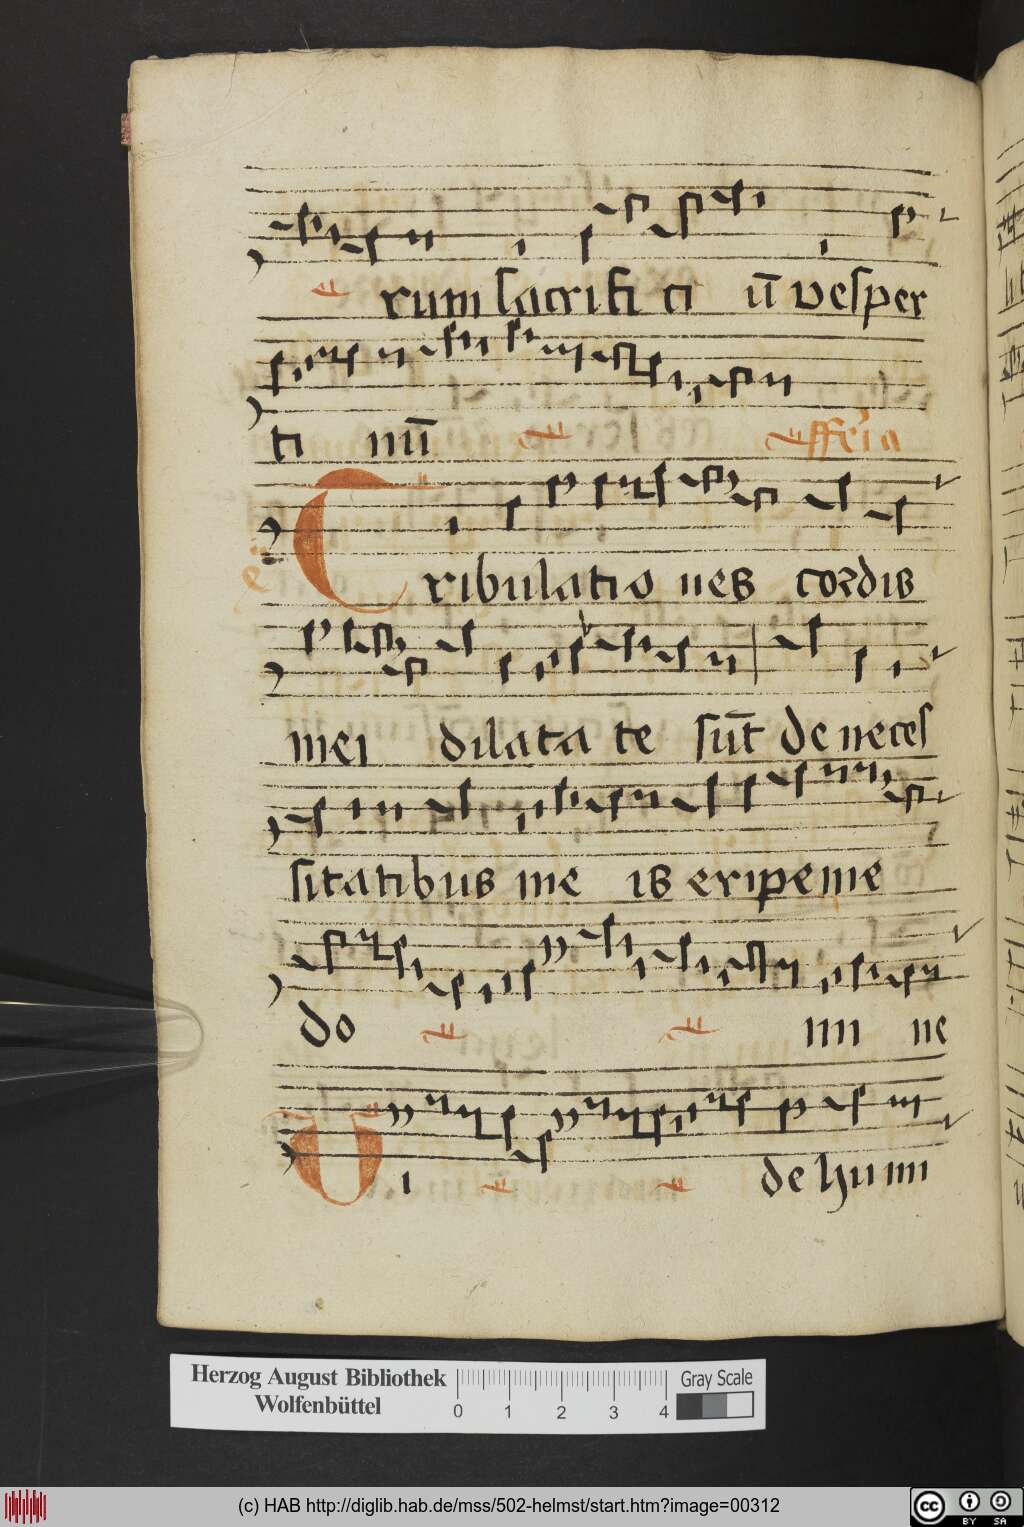 rum sacrifi ci ū vesper
ti nū ff eria
Tribulatio nes cordis
mei dilata te sūt de neces
sitatibus me is eripe me
do mi ne
Vi de humi
Herzog August Bibliothek
Wolfenbüttel
0 1 2 3 4
Gray Scale
(c) HAB http://diglib.hab.de/mss/502-helmst/start.htm?image=00312
cc BY SA